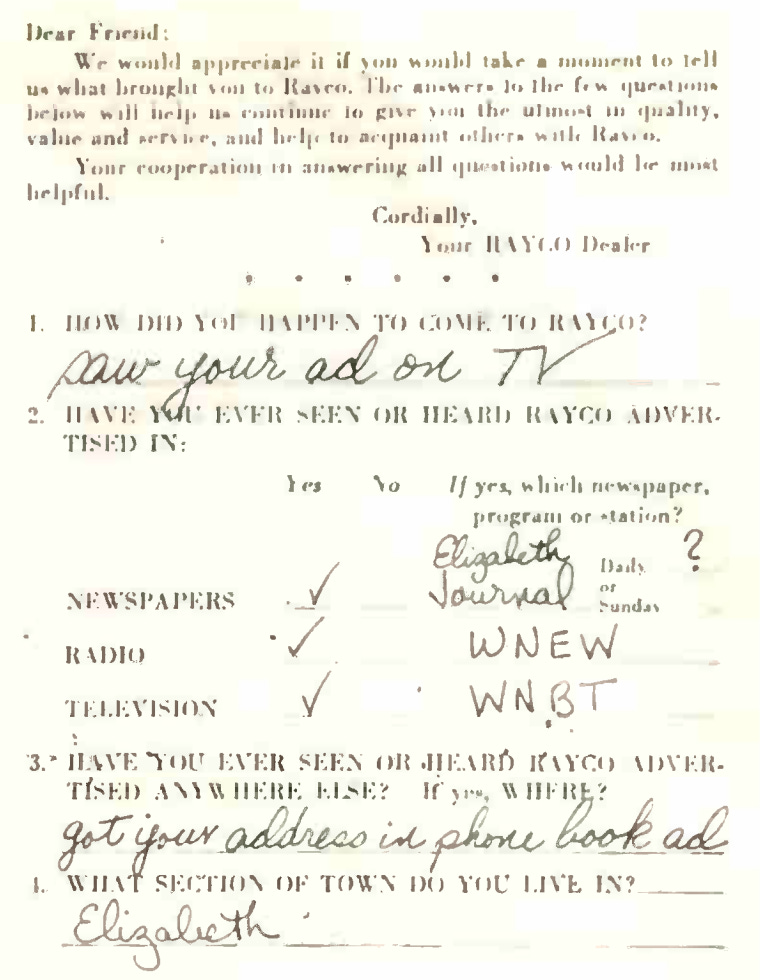 Dear Friend:
We would appreciate it if you would take a moment to tell
us what brought you to Rayco. The answers to the few questions
below will help us continue to give you the utmost in quality,
value and service, and help to acquaint others with Rayco.
Your cooperation in answering all questions would be most
helpful.
Cordially,
Your RAYCO Dealer
1. HOW DID YOU HAPPEN TO COME TO RAYCO?
saw your ad on TV
2. HAVE YOU EVER SEEN OR HEARD RAYCO ADVER-
TISED IN:
Yes No If yes, which newspaper,
program or station?
NEWSPAPERS ✓ Elizabeth Journal Daily or Sunday ?
RADIO ✓ WNEW
TELEVISION ✓ WNBT
3. HAVE YOU EVER SEEN OR HEARD RAYCO ADVER-
TISED ANYWHERE ELSE? If yes, WHERE?
got your address in phone book ad
4. WHAT SECTION OF TOWN DO YOU LIVE IN?
Elizabeth